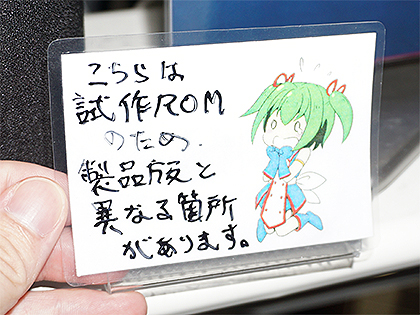 こちらは
試作ROM
のため、
製品版と
異なる箇所
があります。